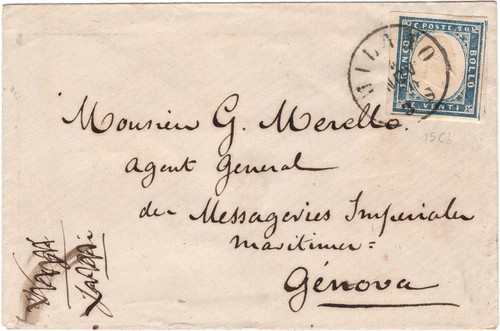 C. POSTE 20
FRANCO
BOLLO
C. VENTI
MILANO
15Cb
Monsieur G. Merello
agent General
des Messageries Imperiales
maritimes=
Génova